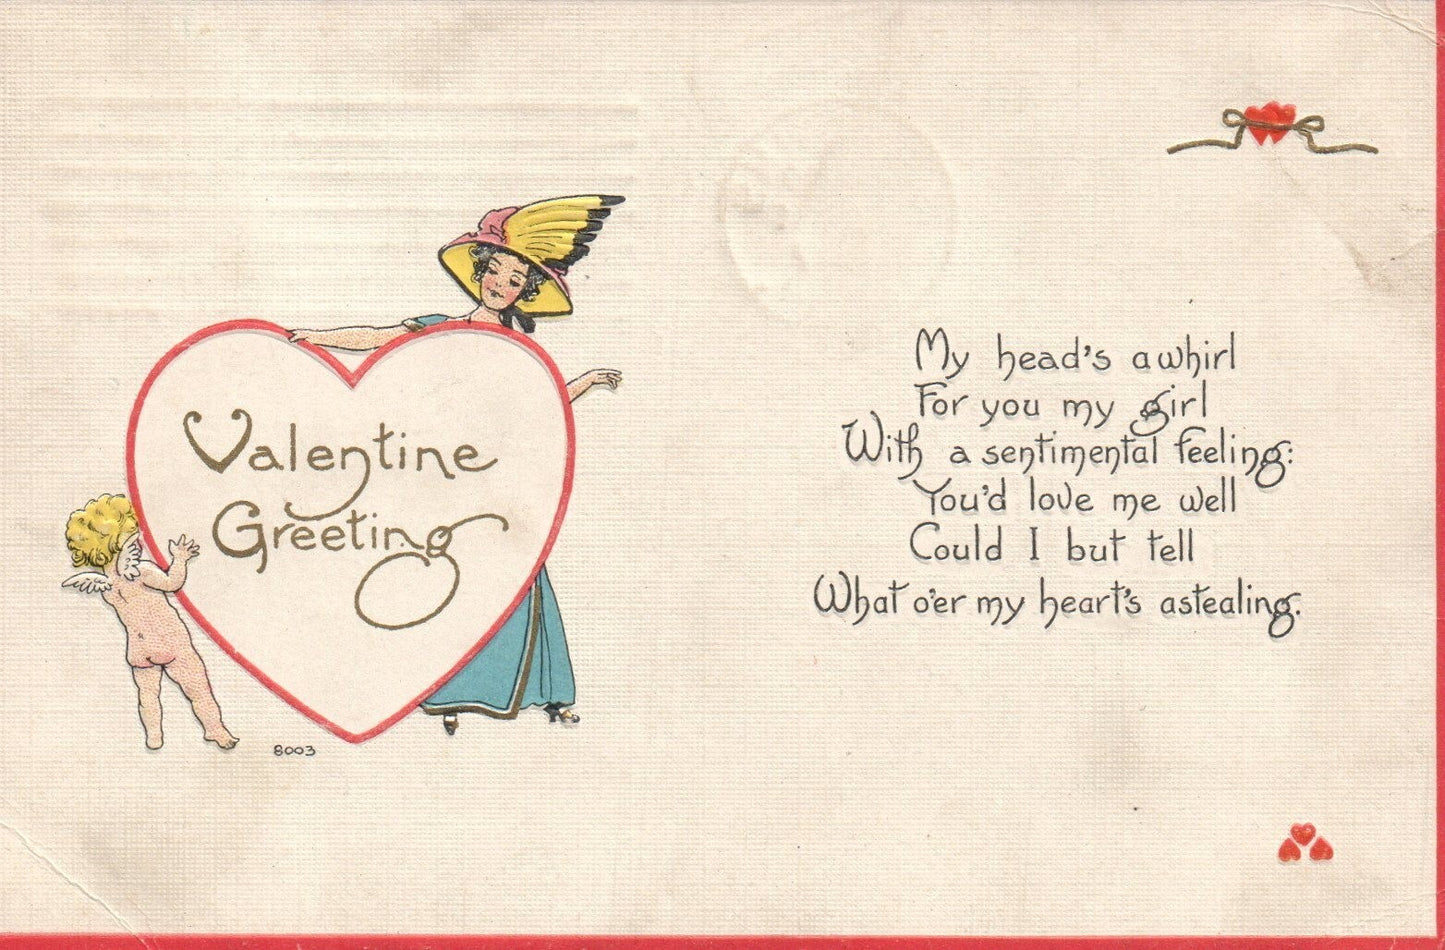 Valentine
Greeting
8003
My head's awhirl
For you my girl
With a sentimental feeling:
You'd love me well
Could I but tell
What o'er my heart's astealing.